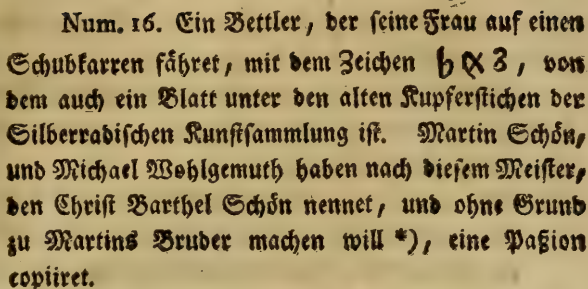 Num. 16. Ein Bettler, der ſeine Frau auf einen
Schubkarren fåhret, mit dem Zeichen b x 3, von
dem auch ein Blatt unter den alten Kupferſtichen der
Silberradiſchen Kunſtſammlung iſt. Martin Schön,
und Michael Wohlgemuth haben nach dieſem Meiſter,
den Chriſt Barthel Schön nennet, und ohne Grund
zu Martins Bruder machen will *), eine Paßion
copiiret.